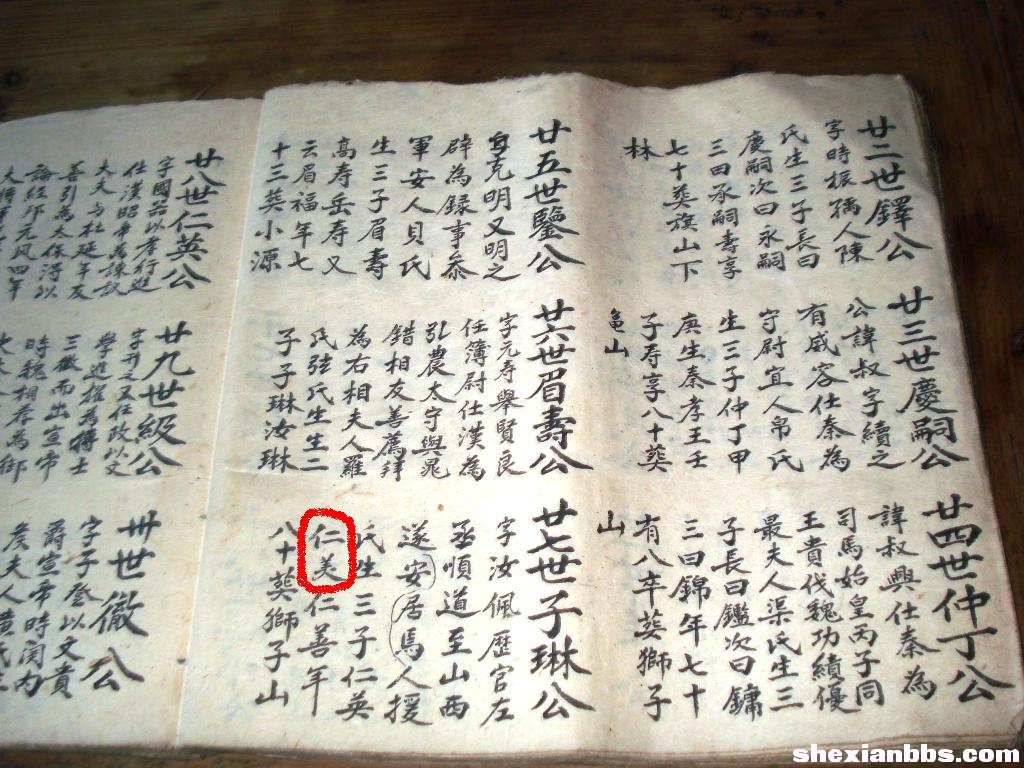 廿二世鐸公
字時振孺人陳
氏生三子長曰
慶嗣次曰永嗣
三曰承嗣壽享
七十葵旗山下
林
廿三世慶嗣公
公諱叔字續之
有威容仕秦為
守尉宜人帛氏
生三子仲丁甲
庚生秦孝王壬
子寿享八十葵
亀山
廿四世仲丁公
諱叔興仕秦為
司馬始皇丙子同
王賁伐魏功續優
最夫人渠氏生三
子長曰鑑次曰鏞
三曰錦年七十
有八卒葵獅子
山
廿五世鑒公
字克明又明之
辟為録事參
軍安人貝氏
生三子眉壽
高寿岳寿又
云眉福年七
十三葵小源
廿六世眉壽公
字元寿舉賢良
任簿尉仕漢為
弘農太守與晁
錯相友善薦拜
為右相夫人羅
氏弦氏生生二
子子琳汝琳
廿七世子琳公
字汝佩歷官左
丞順道至山西
遂安居馬人援
氏生三子仁英
仁美仁善年
八十葵獅子山
廿八世仁英公
字國器以孝行進
仕漢昭帝為諫議
大夫与杜延年友
善引為太保得以
論經邦元凤四年
廿九世級公
字升之五任政以文
學進擢為博士
三徵而出宣帝
時魏相荐為御
卅世徹公
字子登以文貴
爵宣帝時関内
矦夫人黄氏生
shexianbbs.com